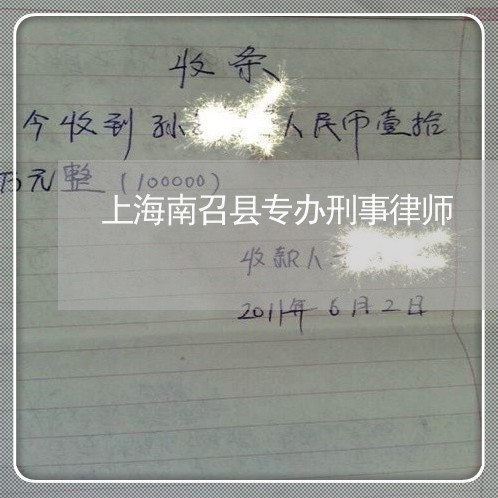 收条
今收到孙 人民币壹拾
万元整(100000)
上海南召县专办刑事律师
收款人
2011年6月2日